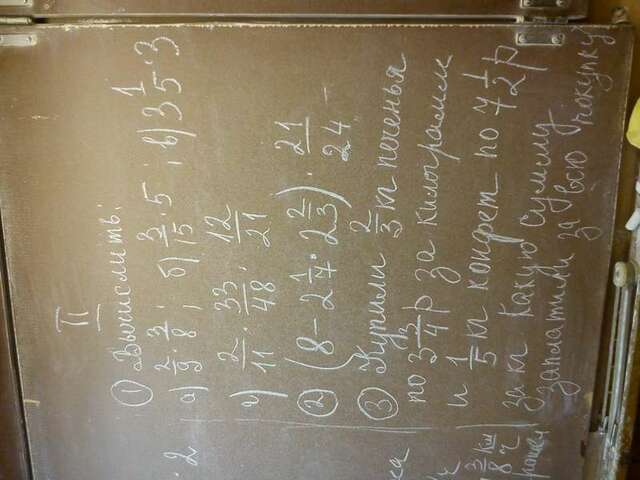 II
① Вычислить:
а) 2/9 · 3/8 ; б) 3/15 · 5 ; в) 3 1/5 · 3
г) 2/11 · 33/48 · 12/21
② (8 - 2 1/4 · 2 2/3) · 21/24
③ Купили 2/3 кг печенья
по 3 3/4 р за килограмм
и 1/5 кг конфет по 7 1/2 р
за кг. Какую сумму
заплатили за всю покупку
· 2
ка
3/8 км
ч